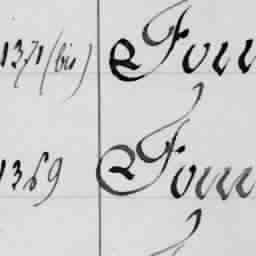 1371 (bis) Fou
1369 Fou